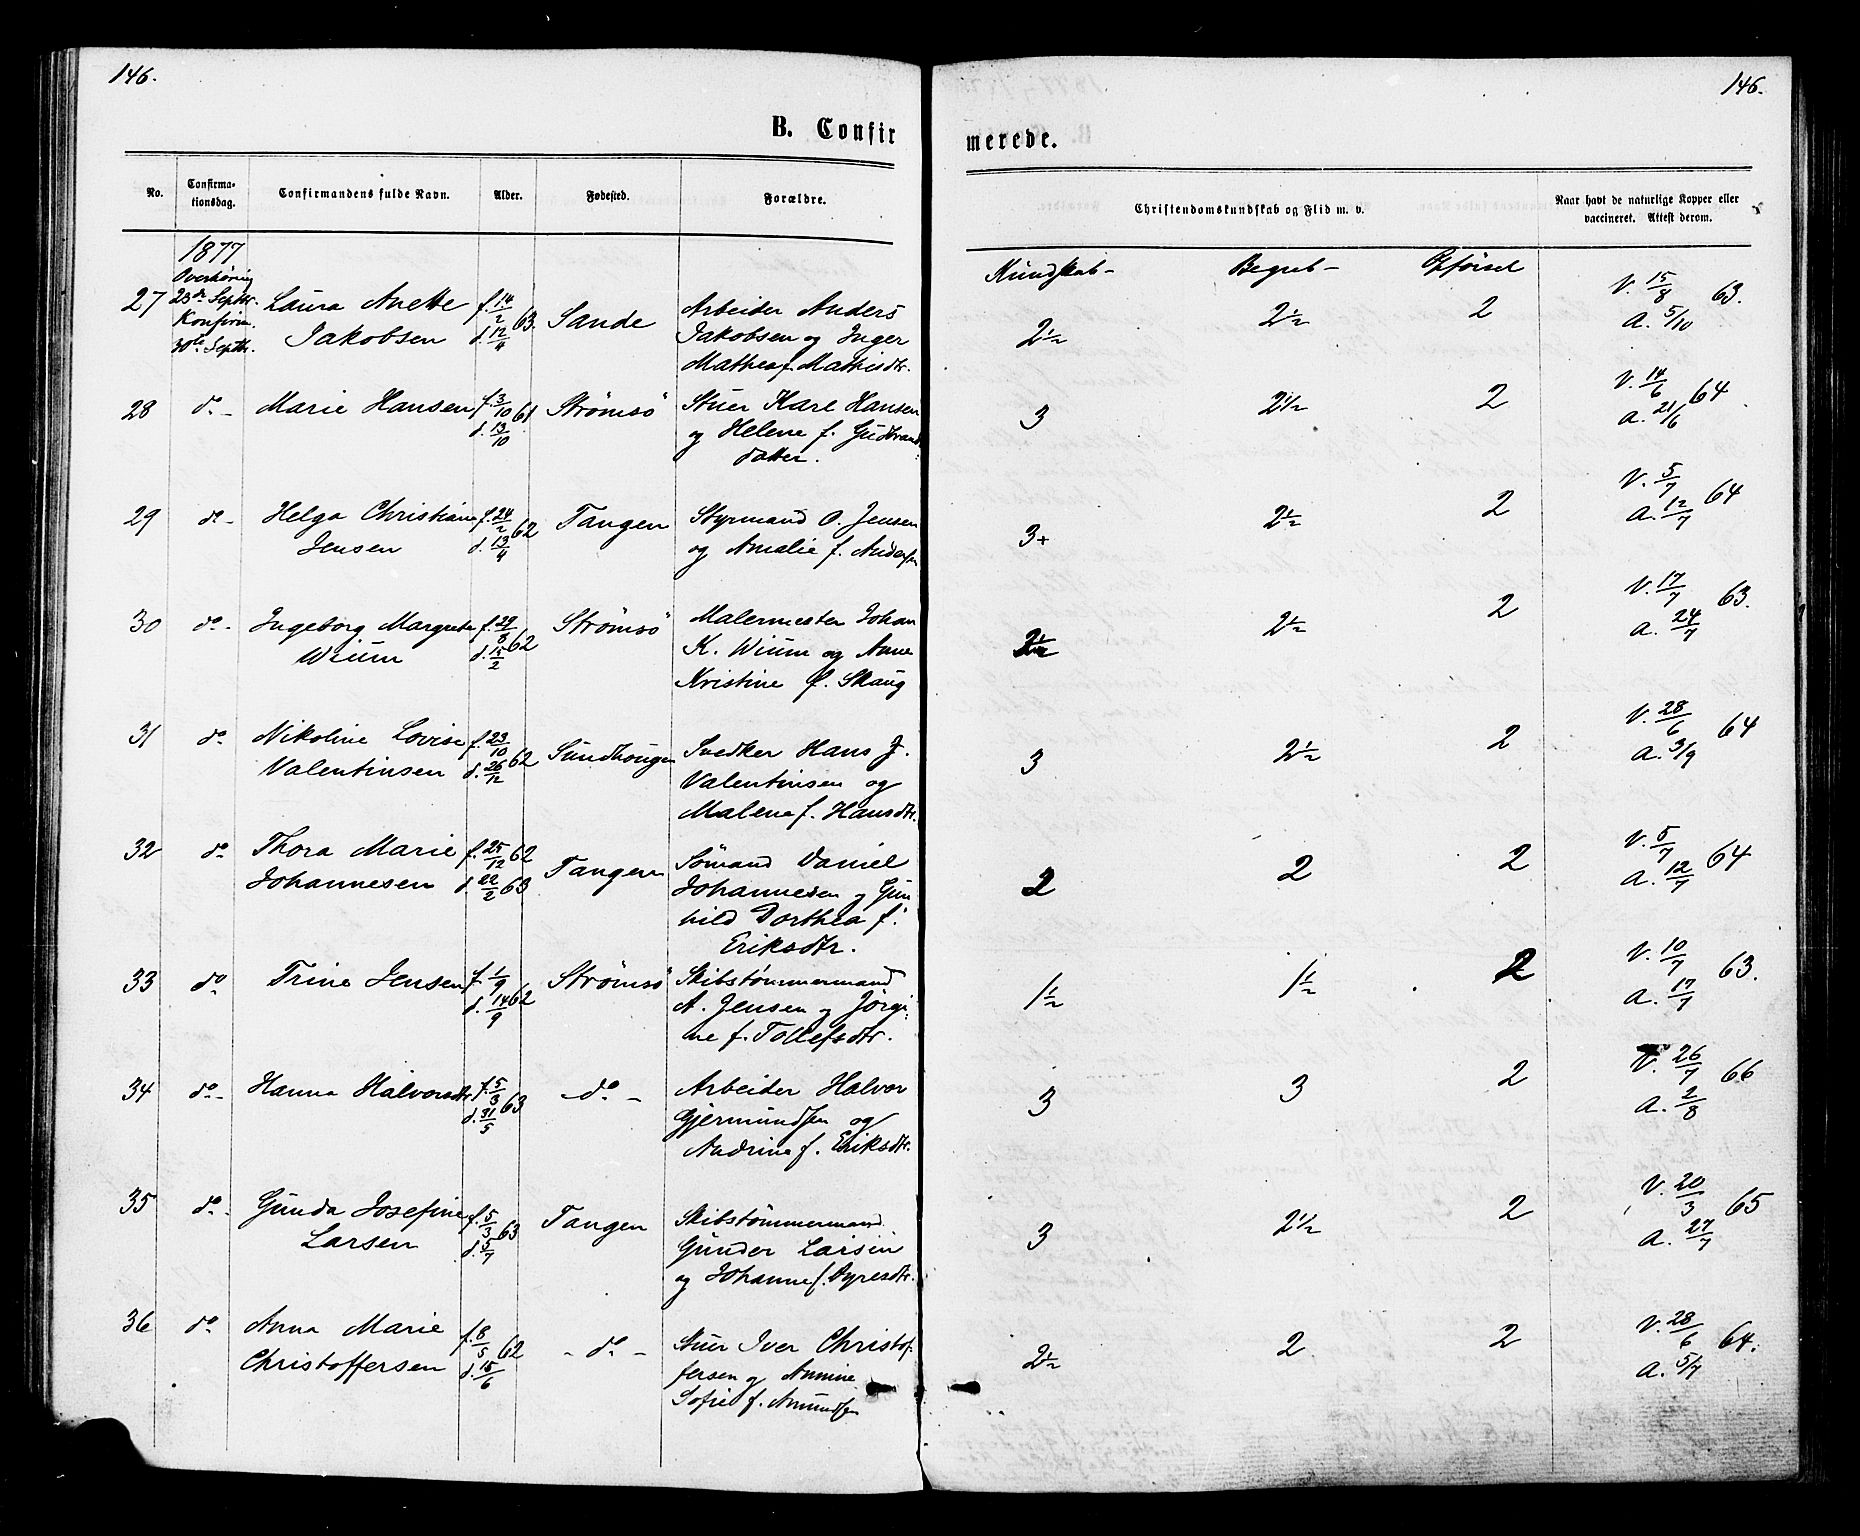 146.
146.
B. Confirmerede.
No.
Confirma-
tionsdag.
Confirmandens fulde Navn.
Alder.
Fødested.
Forældre.
Christendomskundskab og Flid m. v.
Naar havt de naturlige Kopper eller
vaccineret. Attest derom.
1877
Overhøring
23de Septbr.
Konfirm.
30te Septbr.
Kundskab - Begreb - Opførsel
27 Laura Anette f. 14/2 63 Sande Arbeider Anders 2½ 2½ 2 V. 15/8 63.
Jakobsen d. 12/4 Jakobsen og Inger A. 5/10
Mathea f. Mathisdtr.
28 do - Marie Hansen f. 3/10 61 Strømsö Stuer Karl Hansen 3 2½ 2 V. 14/6 64
d. 13/10 og Helene f. Gudbrands A. 21/6
datter.
29 do - Helga Christiane f. 24/2 62 Tangen Styrmand O. Jensen 3+ 2½ 2 V. 5/7 64
Jensen d. 13/4 og Amalie f. Andersen A. 12/7
30 do - Ingeborg Margrete f. 29/8 62 Strømsö Malermester Johan 2½ 2½ 2 V. 17/7 63.
Wium d. 15/2 K. Wium og Anne A. 24/7
Kristine f. Skaug
31 do Nikoline Lovise f. 23/10 62 Sundhougen Svedker Hans J. 3 2½ 2 V. 28/6 64
Valentinsen d. 26/12 Valentinsen og A. 3/9
Malene f. Hansdtr.
32 do Thora Marie f. 25/12 62 Tangen Sömand Daniel 2 2 2 V. 5/7 64
Johannesen d. 22/2 63 Johannesen og Gun A. 12/7
hild Dorthea f.
Eriksdtr.
33 do Trine Jensen f. 1/9 62 Strømsö Skibstömmermand 1½ 1½ 2 V. 10/7 63.
d. 14/9 A. Jensen og Jörgi: A. 17/7
ne f. Tollefsdtr.
34 do - Hanna Halvorsdtr. f. 5/3 63 - do - Arbeider Halvor 3 3 2 V. 26/7 66
d. 31/5 Gjermundsen og A. 2/8
Andrine f. Eriksdtr.
35 do - Gunda Josefine f. 5/3 63 Tangen Skibstömmermand 3 2½ 2 V. 20/3 65
Larsen d. 5/7 Gunder Larsen A. 27/7
og Johanne f. Dyresdtr.
36 do Anna Marie f. 8/5 62 - do - Stuer Iver Christof: 2½ 2 2 V. 28/6 64.
Christoffersen d. 15/6 fersen og Annine A. 5/7
Sofie f. Amundsen